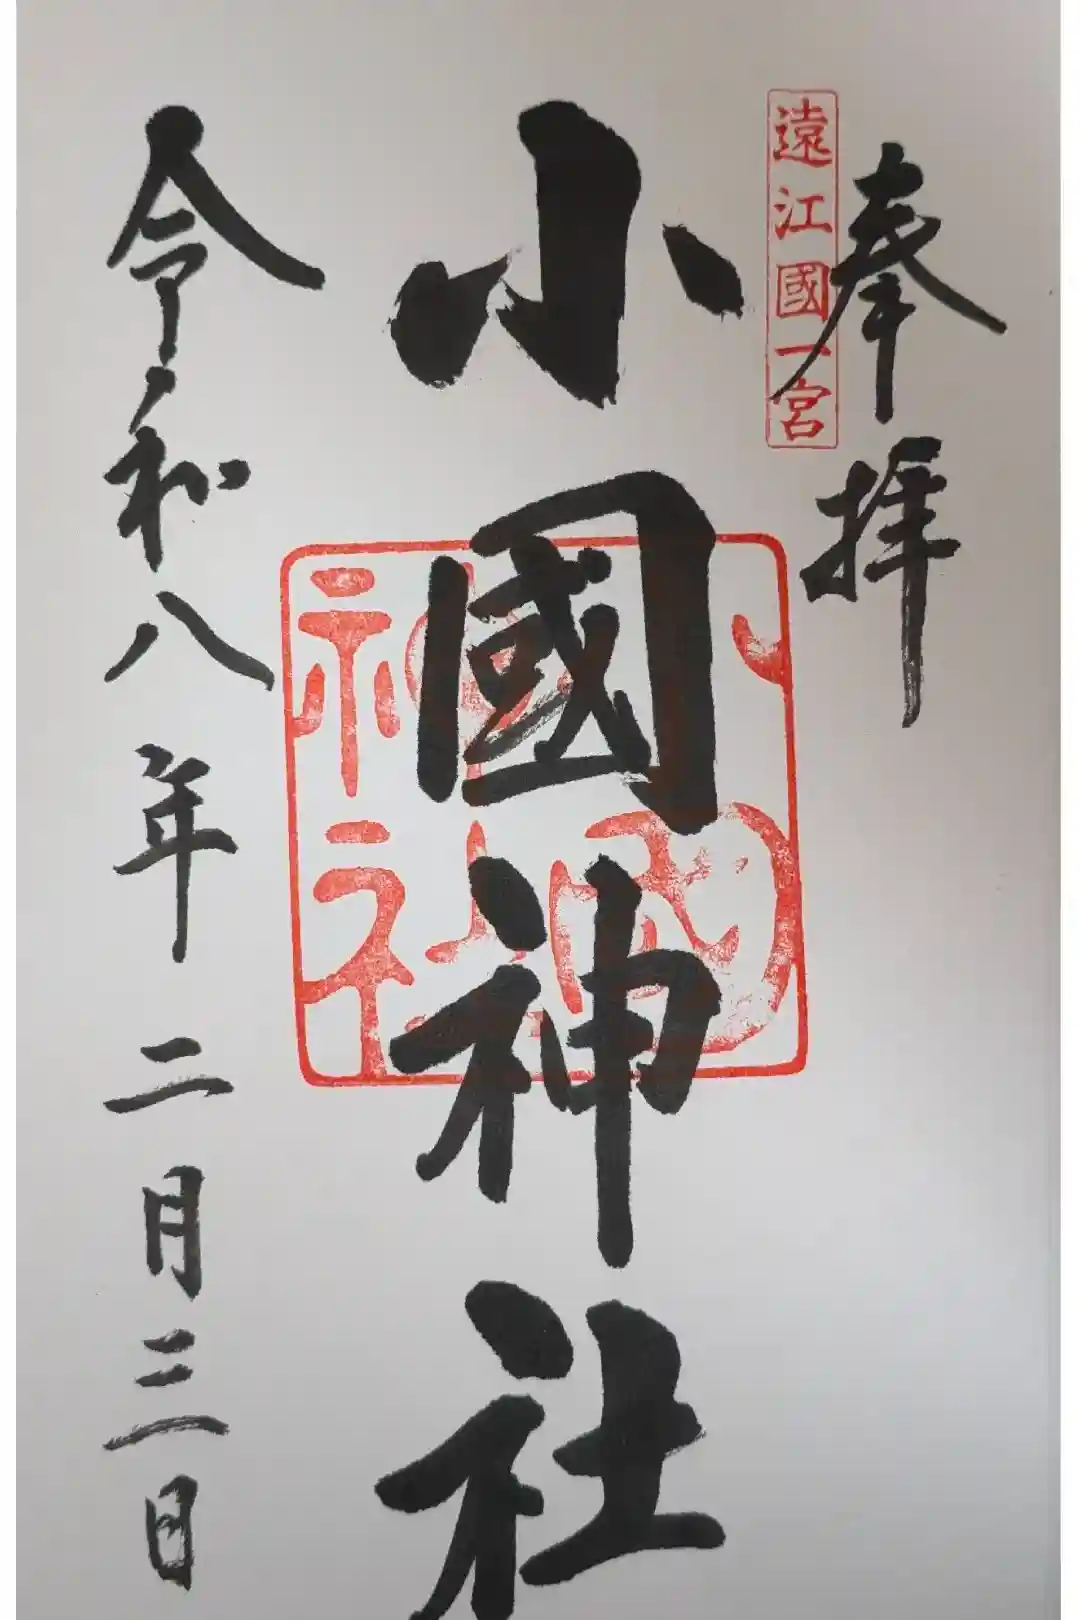 奉拝
遠江國一宮
小國神社
小國
神社
令和八年二月三日